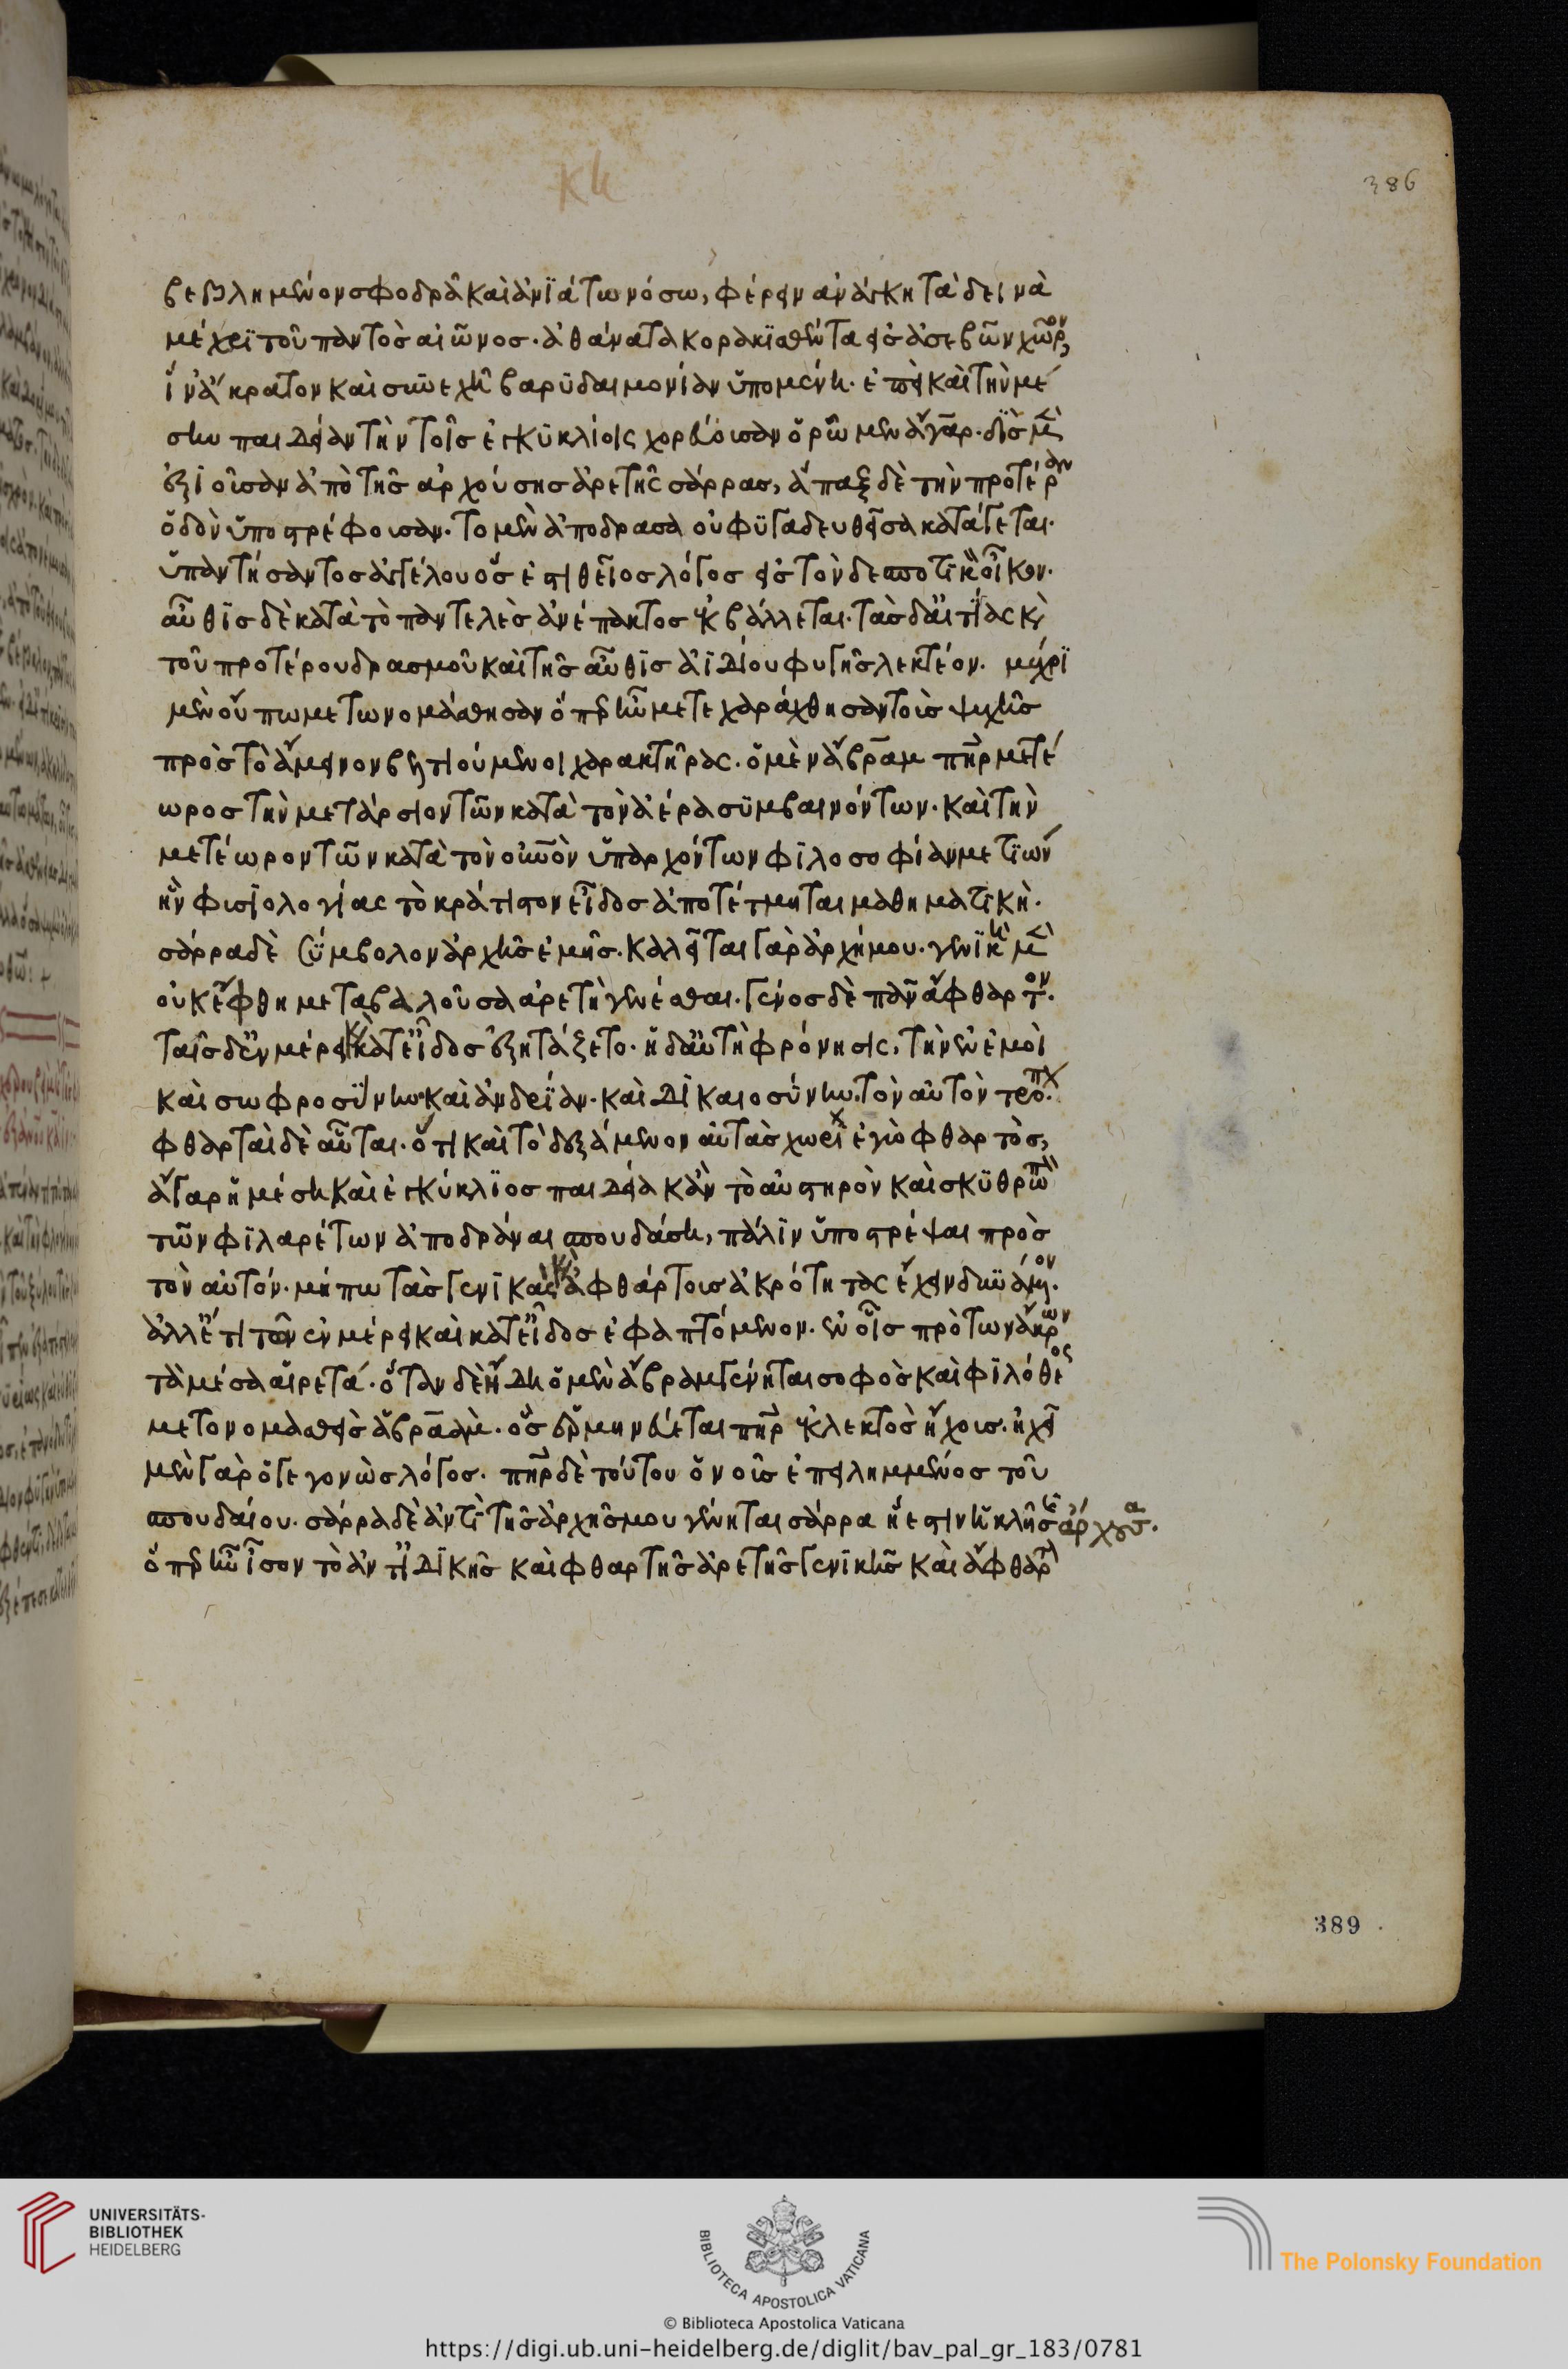 βεβλημένον σφοδρᾶ καὶ ἀνϊάτω νόσω, φέρειν ἀνάγκη τὰ δεινὰ
μέχρϊ τοῦ παντὸς αἰῶνος. ἀθάνατα κορακϊσθέντα εἰς ἀσεβῶν χῶρον,
ἵν ἄκρατον καὶ συνεχῆ βαρϋδαιμονίαν ὑπομένη. ἐπεὶ καὶ τὴν μέ
σην παιδείαν τὴν τοῖς ἐγκϋκλίοις χορεύουσαν ὁρῶμεν ἄγαρ. δϊς μὲν
ἐξιοῦσαν ἀπὸ τῆς ἀρχούσης ἀρετῆς σάρρας, ἅπαξ δὲ τὴν προτέραν
ὁδὸν ὑποστρέφουσαν. το μὲν ἀποδρασα οὐ φϋγαδευθεῖσα κατάγεται.
ὑπαντήσαντος ἀγγέλου ὅς ἐστι θεῖος λόγος εἰς τὸν δεσποτικὸν οἶκον.
αὖθϊς δὲ κατὰ τὸ παντελὲς ἀνέπακτος ἐκβάλλεται. τὰς δ αἰτίας καὶ
τοῦ προτέρου δρασμοῦ καὶ τῆς αὖθϊς ἀϊδίου φυγῆς λεκτέον. μέχρϊ
μὲν οὔπω μετωνομάσθησαν ὅπερ ἦν μετεχαράχθησαν τοῖς ψυχῆς
πρὸς τὸ ἄμεινον βελτιούμενοι χαρακτῆρας. ὁ μὲν ἄβραμ πατὴρ μετέ
ωρος τὴν μετάρσιον τῶν κατὰ τὸν ἀέρα σϋμβαινόντων. καὶ τὴν
μετέωρον τῶν κατὰ τὸν οὐνὸν ὑπαρχόντων φϊλοσοφίαν μετϊων
ἣν φυσϊολογίας τὸ κράτιστον εἶδος ἀποτέτμηται μαθηματϊκή.
σάρρα δὲ σύμβολον ἀρχῆς ἐμῆς. καλεῖται γὰρ ἀρχή μου. γενϊκὴ μὲν
οὐκ ἔφθη μεταβαλοῦσα ἀρετὴ γενέσθαι. γένος δὲ πᾶν ἄφθαρτον.
ταῖς δ ἐν μέρει καὶ κατ εἶδος ἐξητάξετο. ἡ δ αὐτὴ φρόνησις, τὴν ἐν ἐμοὶ
καὶ σωφροσύνην καὶ ἀνδρείαν. καὶ δϊκαιοσύνην. τὸν αὐτὸν τρόπον.
φθαρταὶ δὲ αὗται. ὅτι καὶ τὸ δεξάμενον αὐτὰς χωρίον ἐγὼ φθαρτός,
ἄγαρ ἡ μέση καὶ ἐγκύκλϊος παιδεία κἂν τὸ αὐστηρὸν καὶ σκϋθρωπὸν
τῶν φϊλαρέτων ἀποδρᾶναι σπουδάση, πάλϊν ὑποστρέψαι πρὸς
τὸν αὐτόν. μήπω τὰς γενϊκὰς καὶ ἀφθάρτοις ἀκρότητας ἔχειν δυνάμενον.
ἀλλ ἔτι τῶν ἐν μέρει καὶ κατ εἶδος ἐφαπτόμενον. ἐν οἷς πρὸ τῶν ἄκρων
τὰ μέσα αἱρετά. ὅταν δὲ ἤδη ὁ μὲν ἄβραμ γένηται σοφὸς καὶ φϊλόθεος
μετονομασθεὶς ἀβραάμ. ὃς ἑρμηνεύεται πατὴρ ἐκλεκτὸς ἤχοις. ἠχεῖ
μὲν γὰρ ὁ γεγονὼς λόγος. πατὴρ δὲ τούτου ὁ νοῦς ἐπειλημμένος τοῦ
σπουδαίου. σάρρα δὲ ἀντὶ τῆς ἀρχῆς μου γένηται σάρρα ἥ ἐστιν ἡ κλῆσις ἄρχουσα.
ὅπερ ἦν ἶσον τὸ ἀντὶ ἰδϊκῆς καὶ φθαρτῆς ἀρετῆς γενϊκῆς καὶ ἄφθαρτ
386
389
UNIVERSITÄTS-
BIBLIOTHEK
HEIDELBERG
BIBLIOTECA APOSTOLICA VATICANA
The Polonsky Foundation
© Biblioteca Apostolica Vaticana
https://digi.ub.uni-heidelberg.de/diglit/bav_pal_gr_183/0781